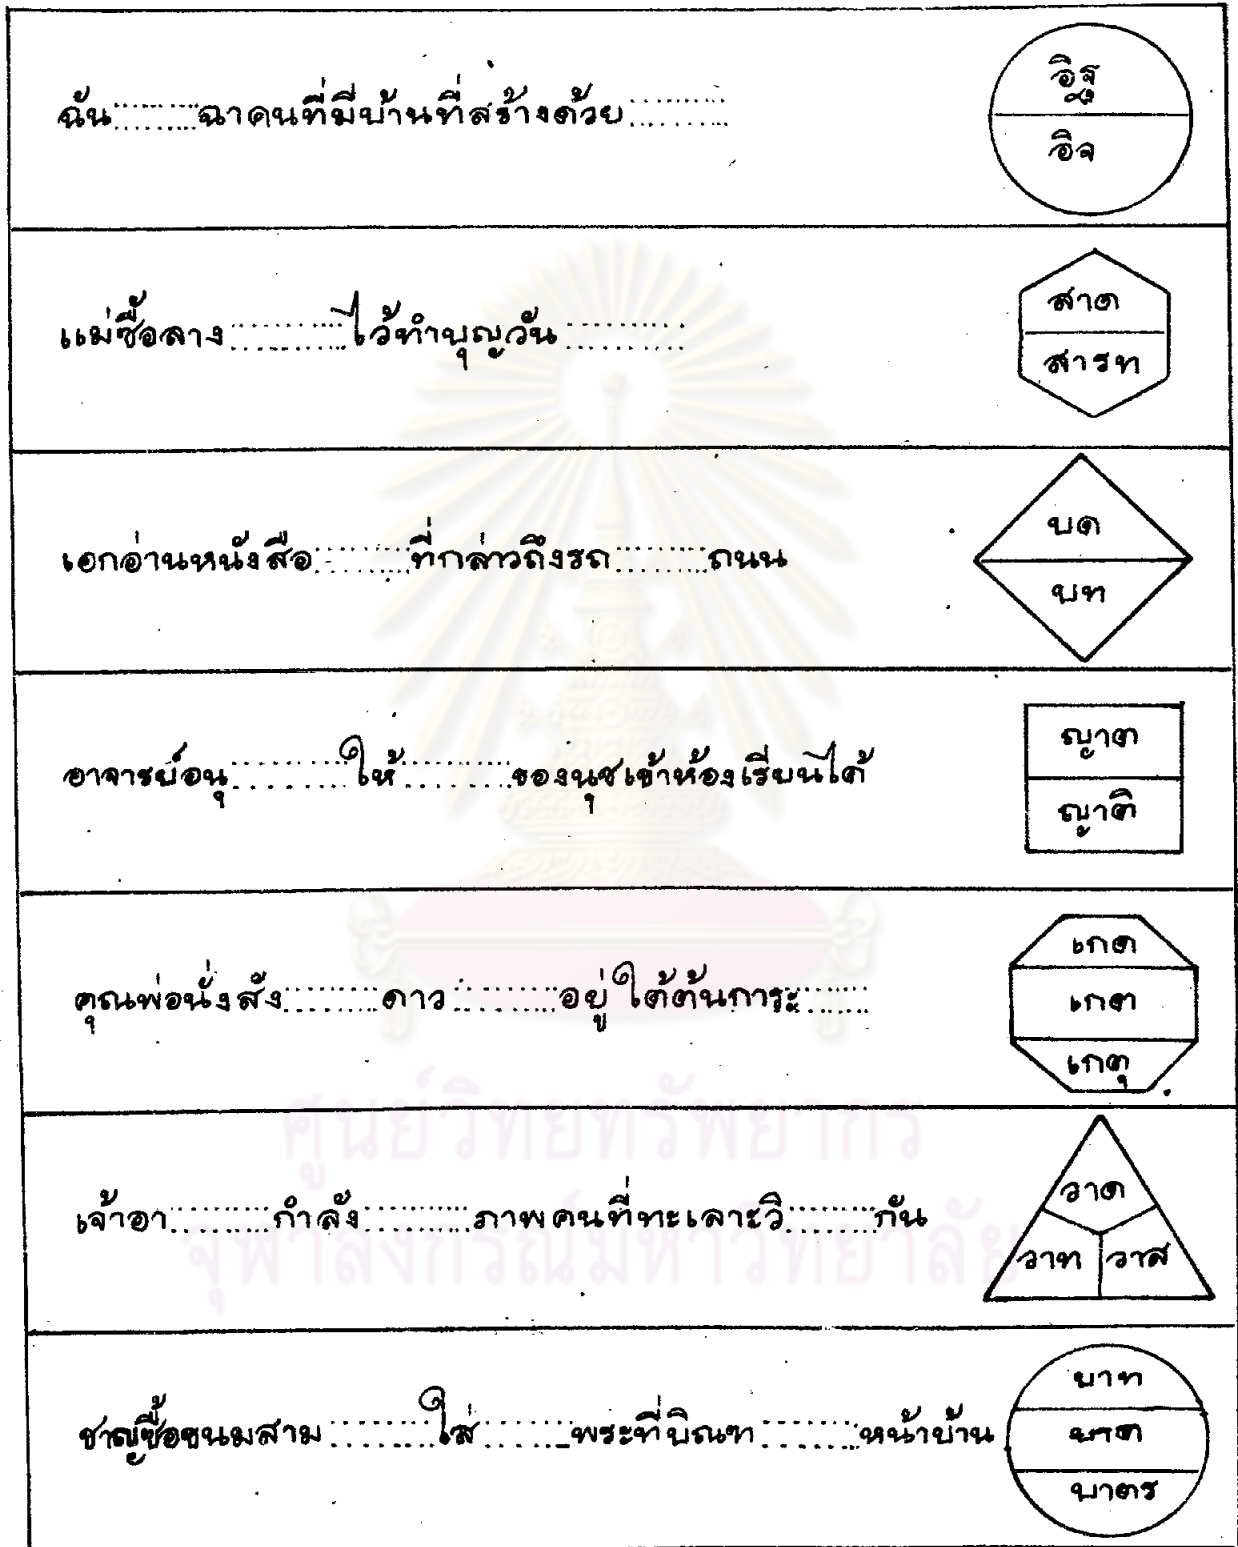 ฉัน..........ฉาคนที่มีบ้านที่สร้างด้วย..........
อิฐ
อิจ
แม่ซื้อลาง..........ไว้ทำบุญวัน..........
สาด
สารท
เอกอ่านหนังสือ..........ที่กล่าวถึงรถ..........ถนน
บด
บท
อาจารย์อนุ..........ให้..........ของนุชเข้าห้องเรียนได้
ญาต
ญาติ
คุณพ่อนั่งสัง..........ดาว..........อยู่ใต้ต้นการะ..........
เกด
เกต
เกตุ
เจ้าอา..........กำลัง..........ภาพคนที่ทะเลาะวิ..........กัน
วาด
วาท วาส
ชาญซื้อขนมสาม..........ใส่..........พระที่บิณฑ..........หน้าบ้าน
บาท
บาต
บาตร
ศูนย์วิทยทรัพยากร
จุฬาลงกรณ์มหาวิทยาลัย